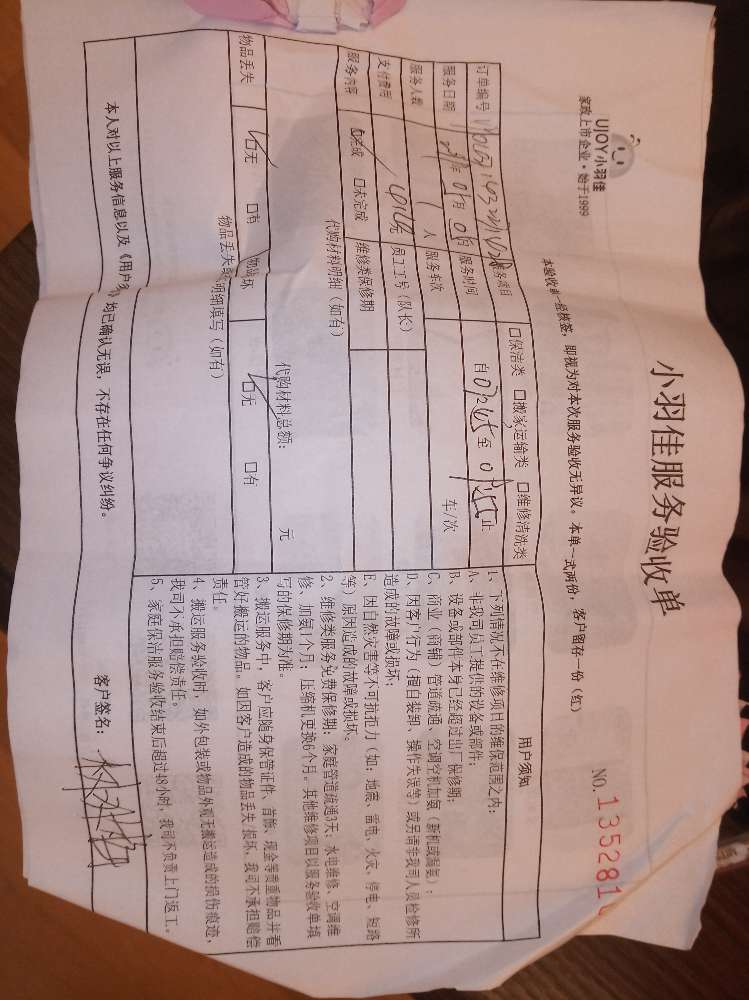 UJOY小羽佳
家政上市企业·始于1999
小羽佳服务验收单
NO.
本验收单一经核签，即视为对本次服务验收无异议。本单一式两份，客户留存一份（红）
订单编号
服务项目 □保洁类 □搬家运输类 □维修清洗类
服务日期 年 月 日 服务时间 自 至 止
服务人数 人 服务车次 车/次
支付费用 元 员工工号（队长）
服务内容 □完成 □未完成 维修类保修期
代购材料明细（如有）
代购材料总额： 元
物品丢失 □无 □有 物品损坏 □无 □有
物品丢失或 明细填写（如有）
用户须知
1、下列情况不在维修项目的维保范围之内：
A、非我司员工提供的设备或部件；
B、设备或部件本身已经超过出厂保修期；
C、商业（商铺）管道疏通、空调空机加氨（新机或漏氨）；
D、因客户行为（擅自装卸、操作失误等）或另请非我司人员检修所
造成的故障或损坏；
E、因自然灾害等不可抗拒力（如：地震、雷电、火灾、停电、短路
等）原因造成的故障或损坏。
2、维修类服务免费保修期：家庭管道疏通7天；水电维修、空调维
修、加氨1个月；压缩机更换6个月。其他维修项目以服务验收单填
写的保修期为准。
3、搬运服务中，客户应随身保管证件、首饰、现金等贵重物品并看
管好搬运的物品。如因客户造成的物品丢失 损坏，我司不承担赔偿
责任。
4、搬运服务验收时，如外包装或物品外观无搬运造成的损伤痕迹，
我司不承担赔偿责任。
5、家庭保洁服务验收结束后超过48小时，我司不负责上门返工。
本人对以上服务信息以及《用户须 》均已确认无误，不存在任何争议纠纷。
客户签名：